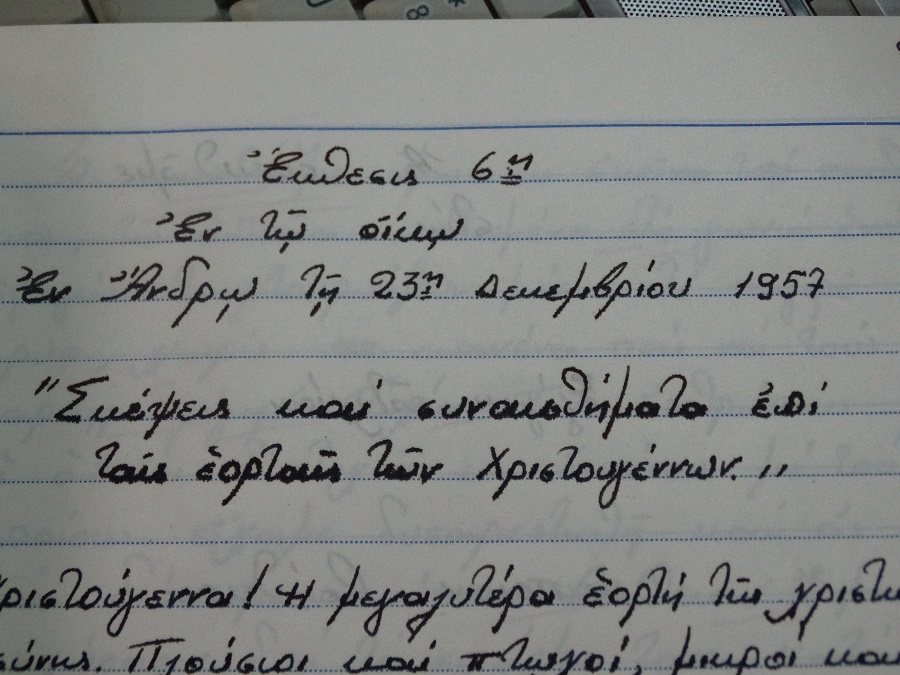 Ἔκθεσις 6η
Ἐν τῷ οἴκῳ
Ἐν Ἄνδρῳ τῇ 23η Δεκεμβρίου 1957
"Σκέψεις καί συναισθήματα ἐπί
ταῖς ἑορταῖς τῶν Χριστουγέννων."
Χριστούγεννα! Η μεγαλυτέρα ἑορτή τῆς χριστια
σύνης. Πλούσιοι καί πτωχοί, μικροί και